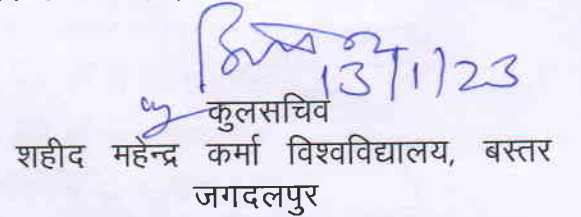 13/1/23
कुलसचिव
शहीद महेन्द्र कर्मा विश्वविद्यालय, बस्तर
जगदलपुर